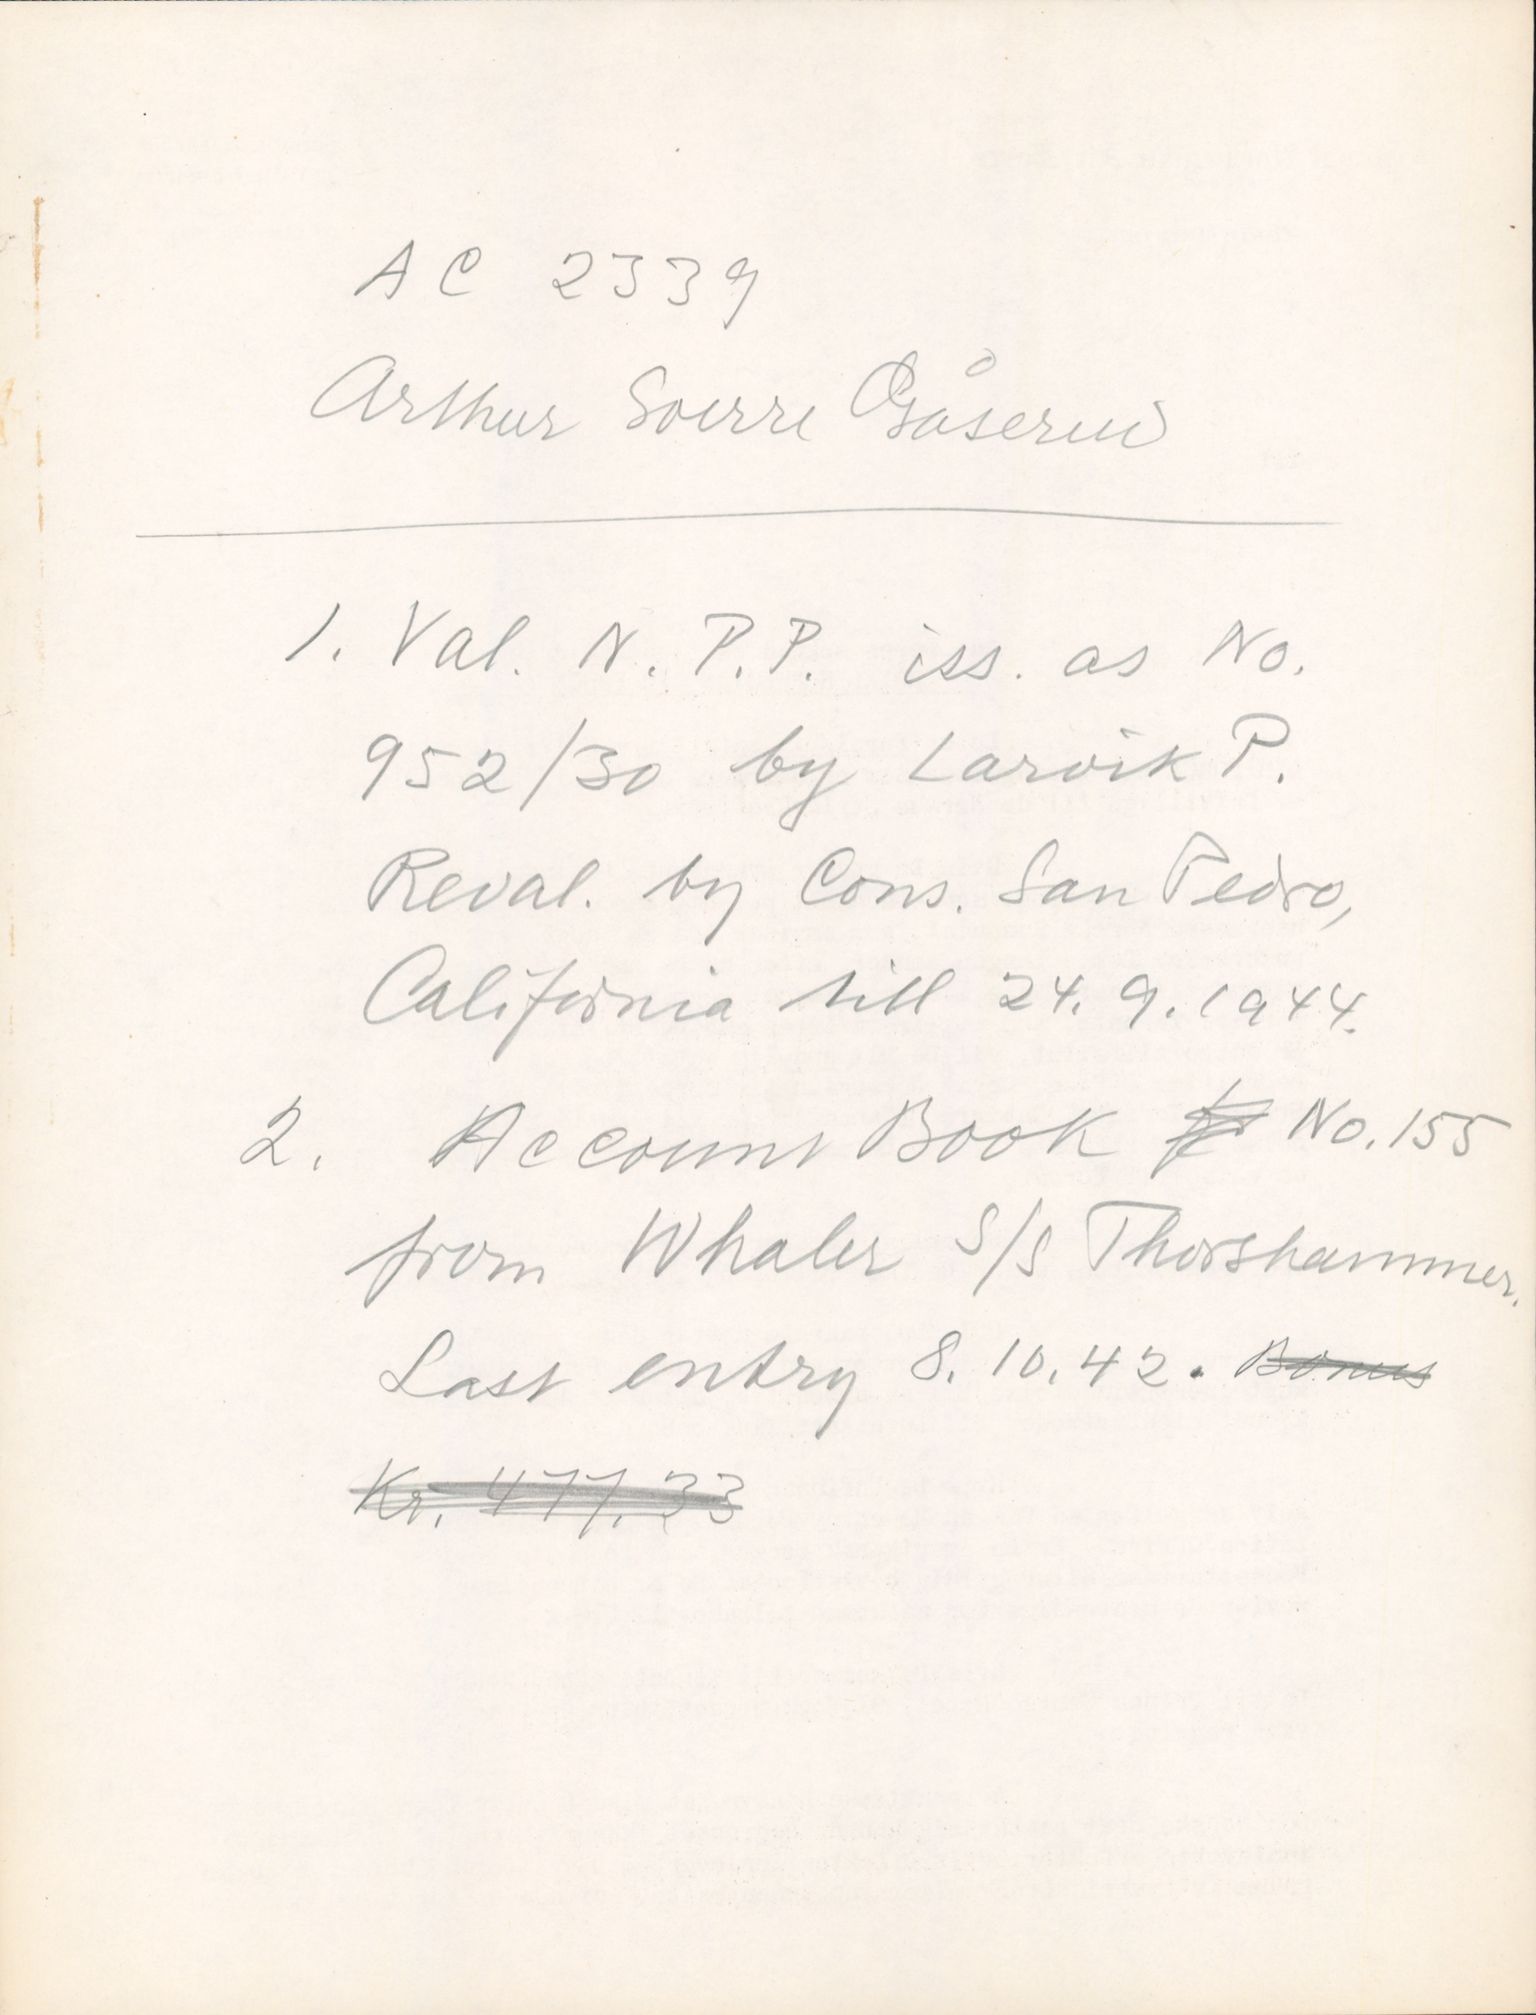 AC 2339
Arthur Sverre Gåserud
1. Val. N.P.P. iss. as No.
952/30 by Larvik P.
Reval. by Cons. San Pedro,
California till 24.9.1944.
2. Account Book No. 155
from Whaler S/S Thorshammer.
Last entry 8.10.42. Bonus
Kr. 477.33